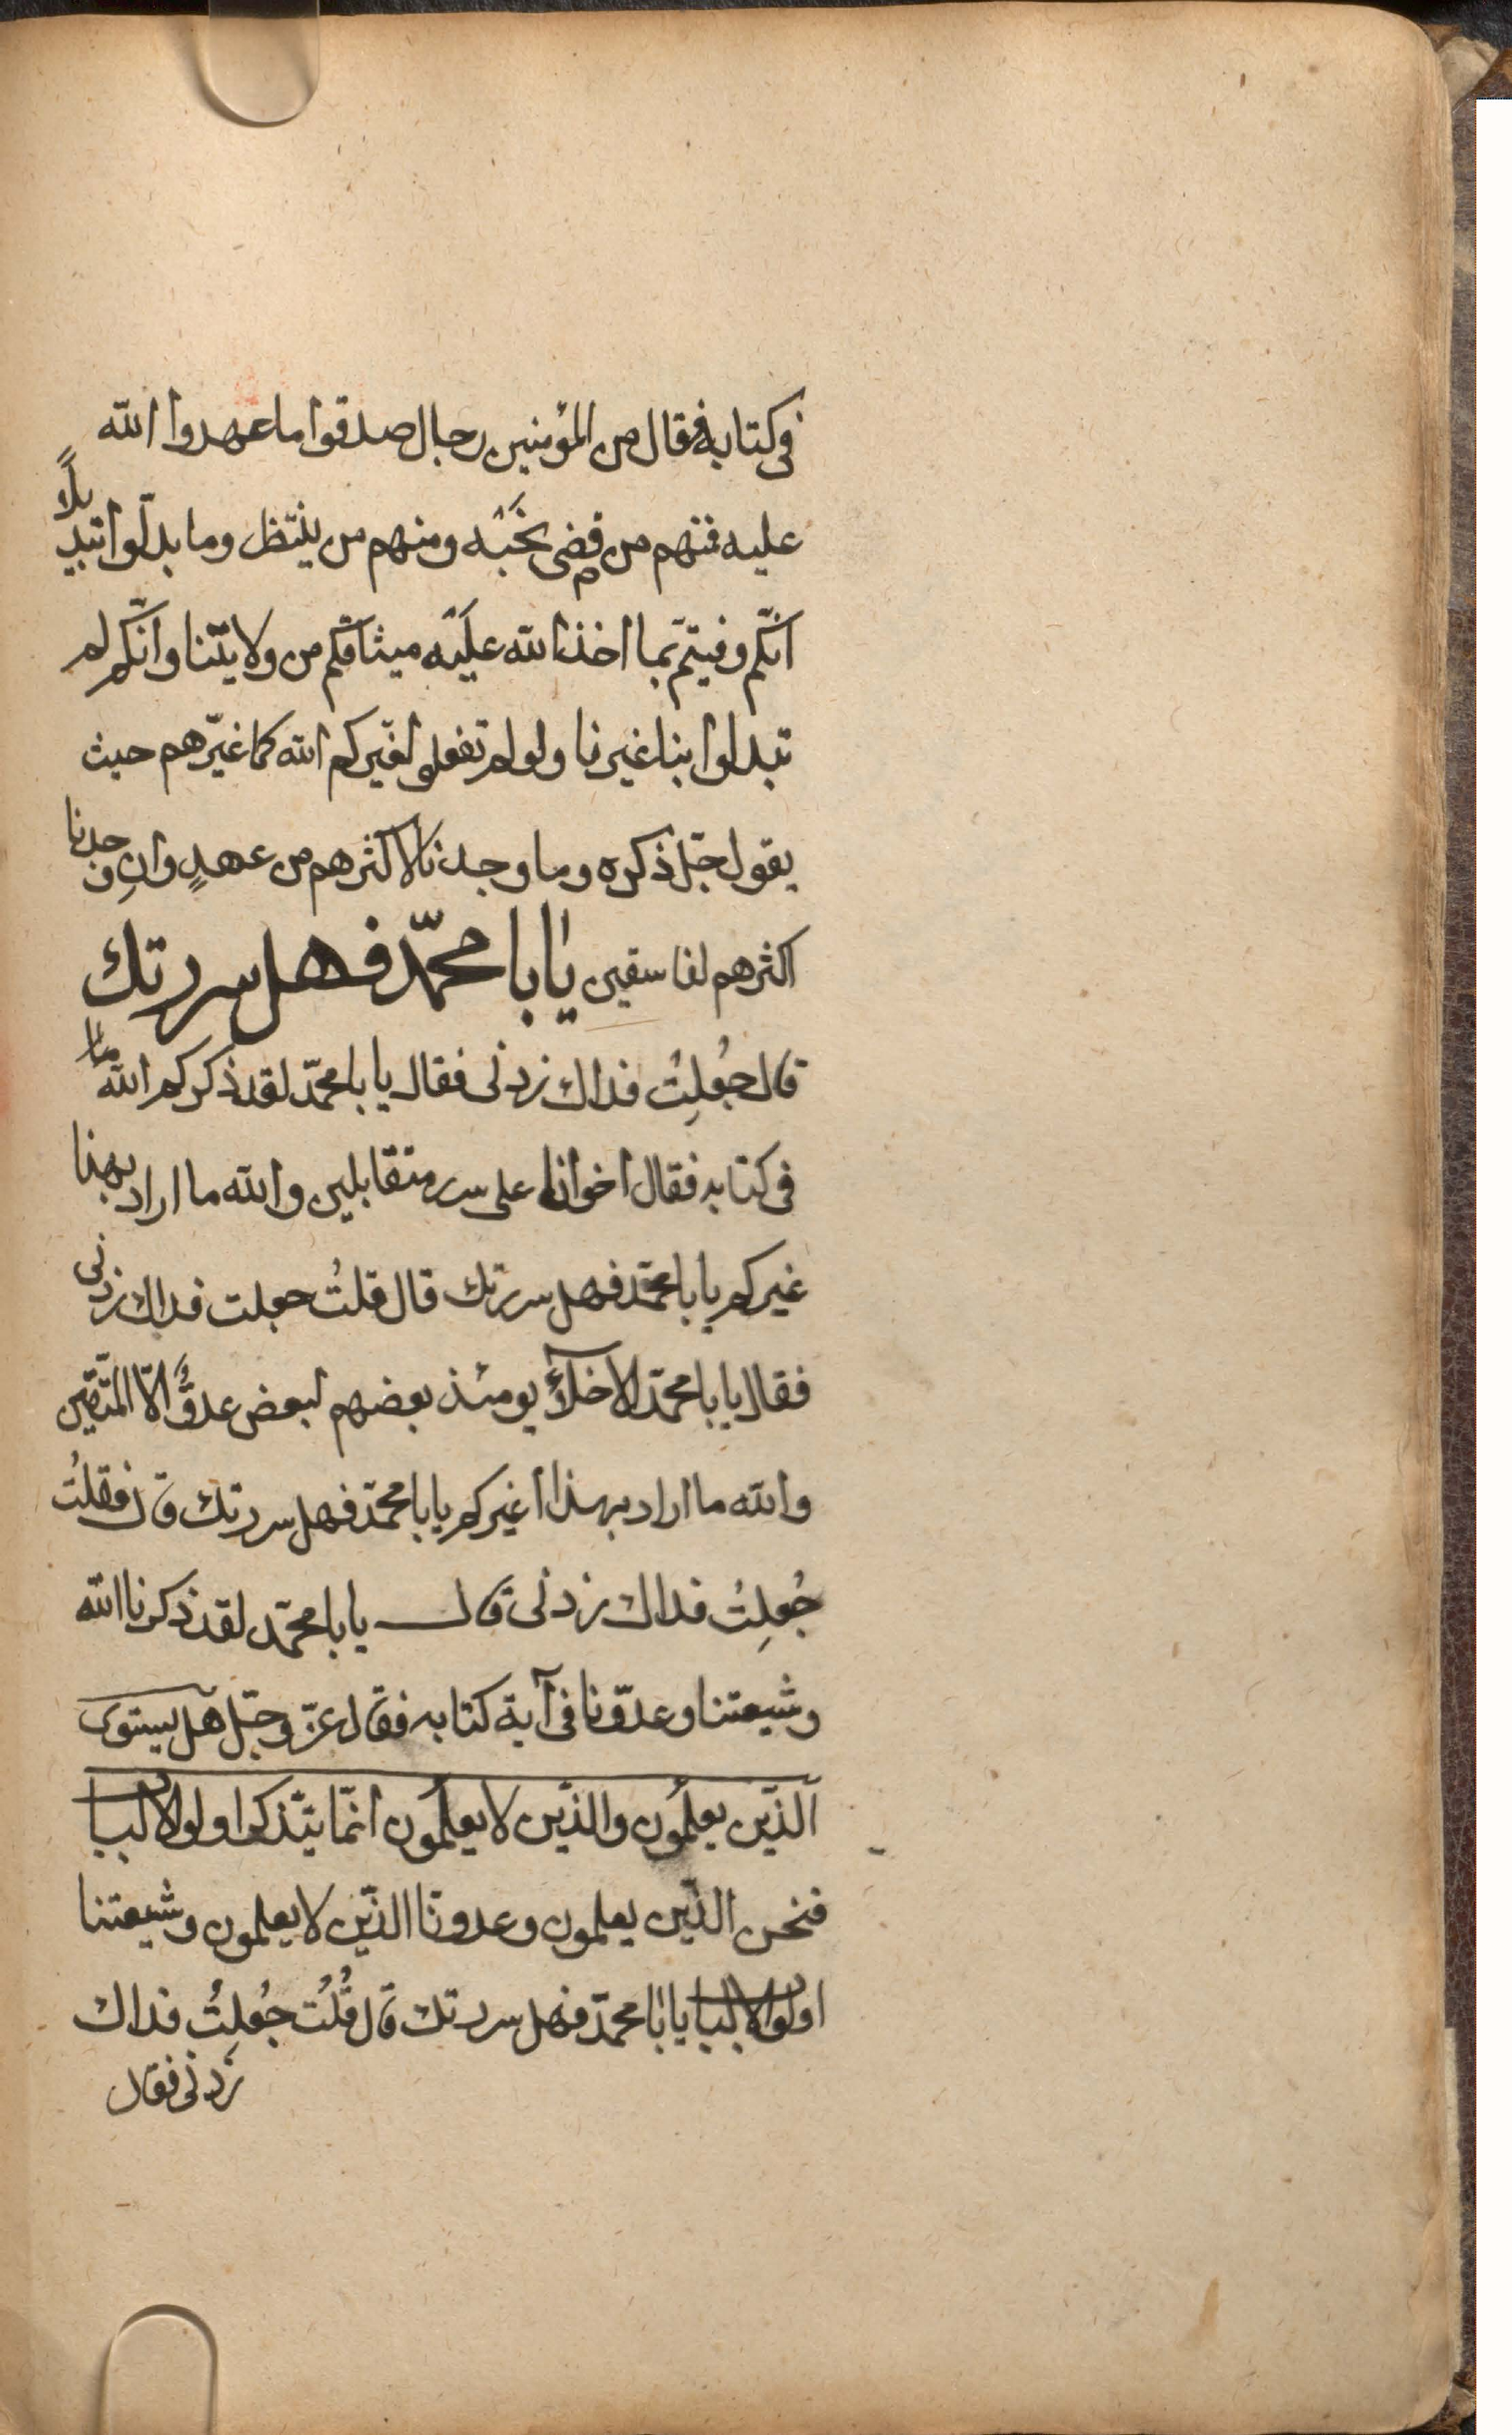 فی کتابه فقال من المؤمنین رجال صدقوا ما عهدوا الله
علیه فمنهم من قضی نحَبْه ومنهم من ینتظر وما بدّلوا تبدیلاً
انّکم وفیتم بما اخذ الله علَیْه میثاقکم من ولایتنا وانّکم لم
تبدلوا بنا غیرنا ولو لم تفعلوا لغیرکم الله کما غیّرهم حیث
یقول جلّ ذکره وما وجدنا لاکثرهم من عهدٍ وانِ وجدنا
اکثرهم لفاسقین یا با محمّد فهل سررتك
قال جُعلِتُ فداك زدنی فقال یا با محمّد لقد ذکرکم الله
فی کتابه فقال اخوانا علی سرر متقابلین والله ما اراد بهذا
غیرکم یا با محمّد فهل سررتك قال قلتُ جعلت فداك زدنی
فقال یا با محمّد الاخلآء یومئذ بعضهم لبعض عدوٌّ الّا المتّقین
والله ما اراد بهذا غیرکم یا با محمّد فهل سررتك قال فقلتُ
جُعلِتُ فداك زدنی قال یا با محمّد لقد ذکرنا الله
وشیعتنا وعدوّنا فی آیة کتابه فقال عزّ وجلّ هل یستوی
الذّین یعلَمُون والذّین لا یعلَمُون انّما یتذّکر اولوا الالباب
فنحن الذّین یعلمون وعدونا الذّین لا یعلمون وشیعتنا
اولوا الالباب یا با محمّد فهل سررتك قال قُلُت جُعلِتُ فداك
زدنی فقال